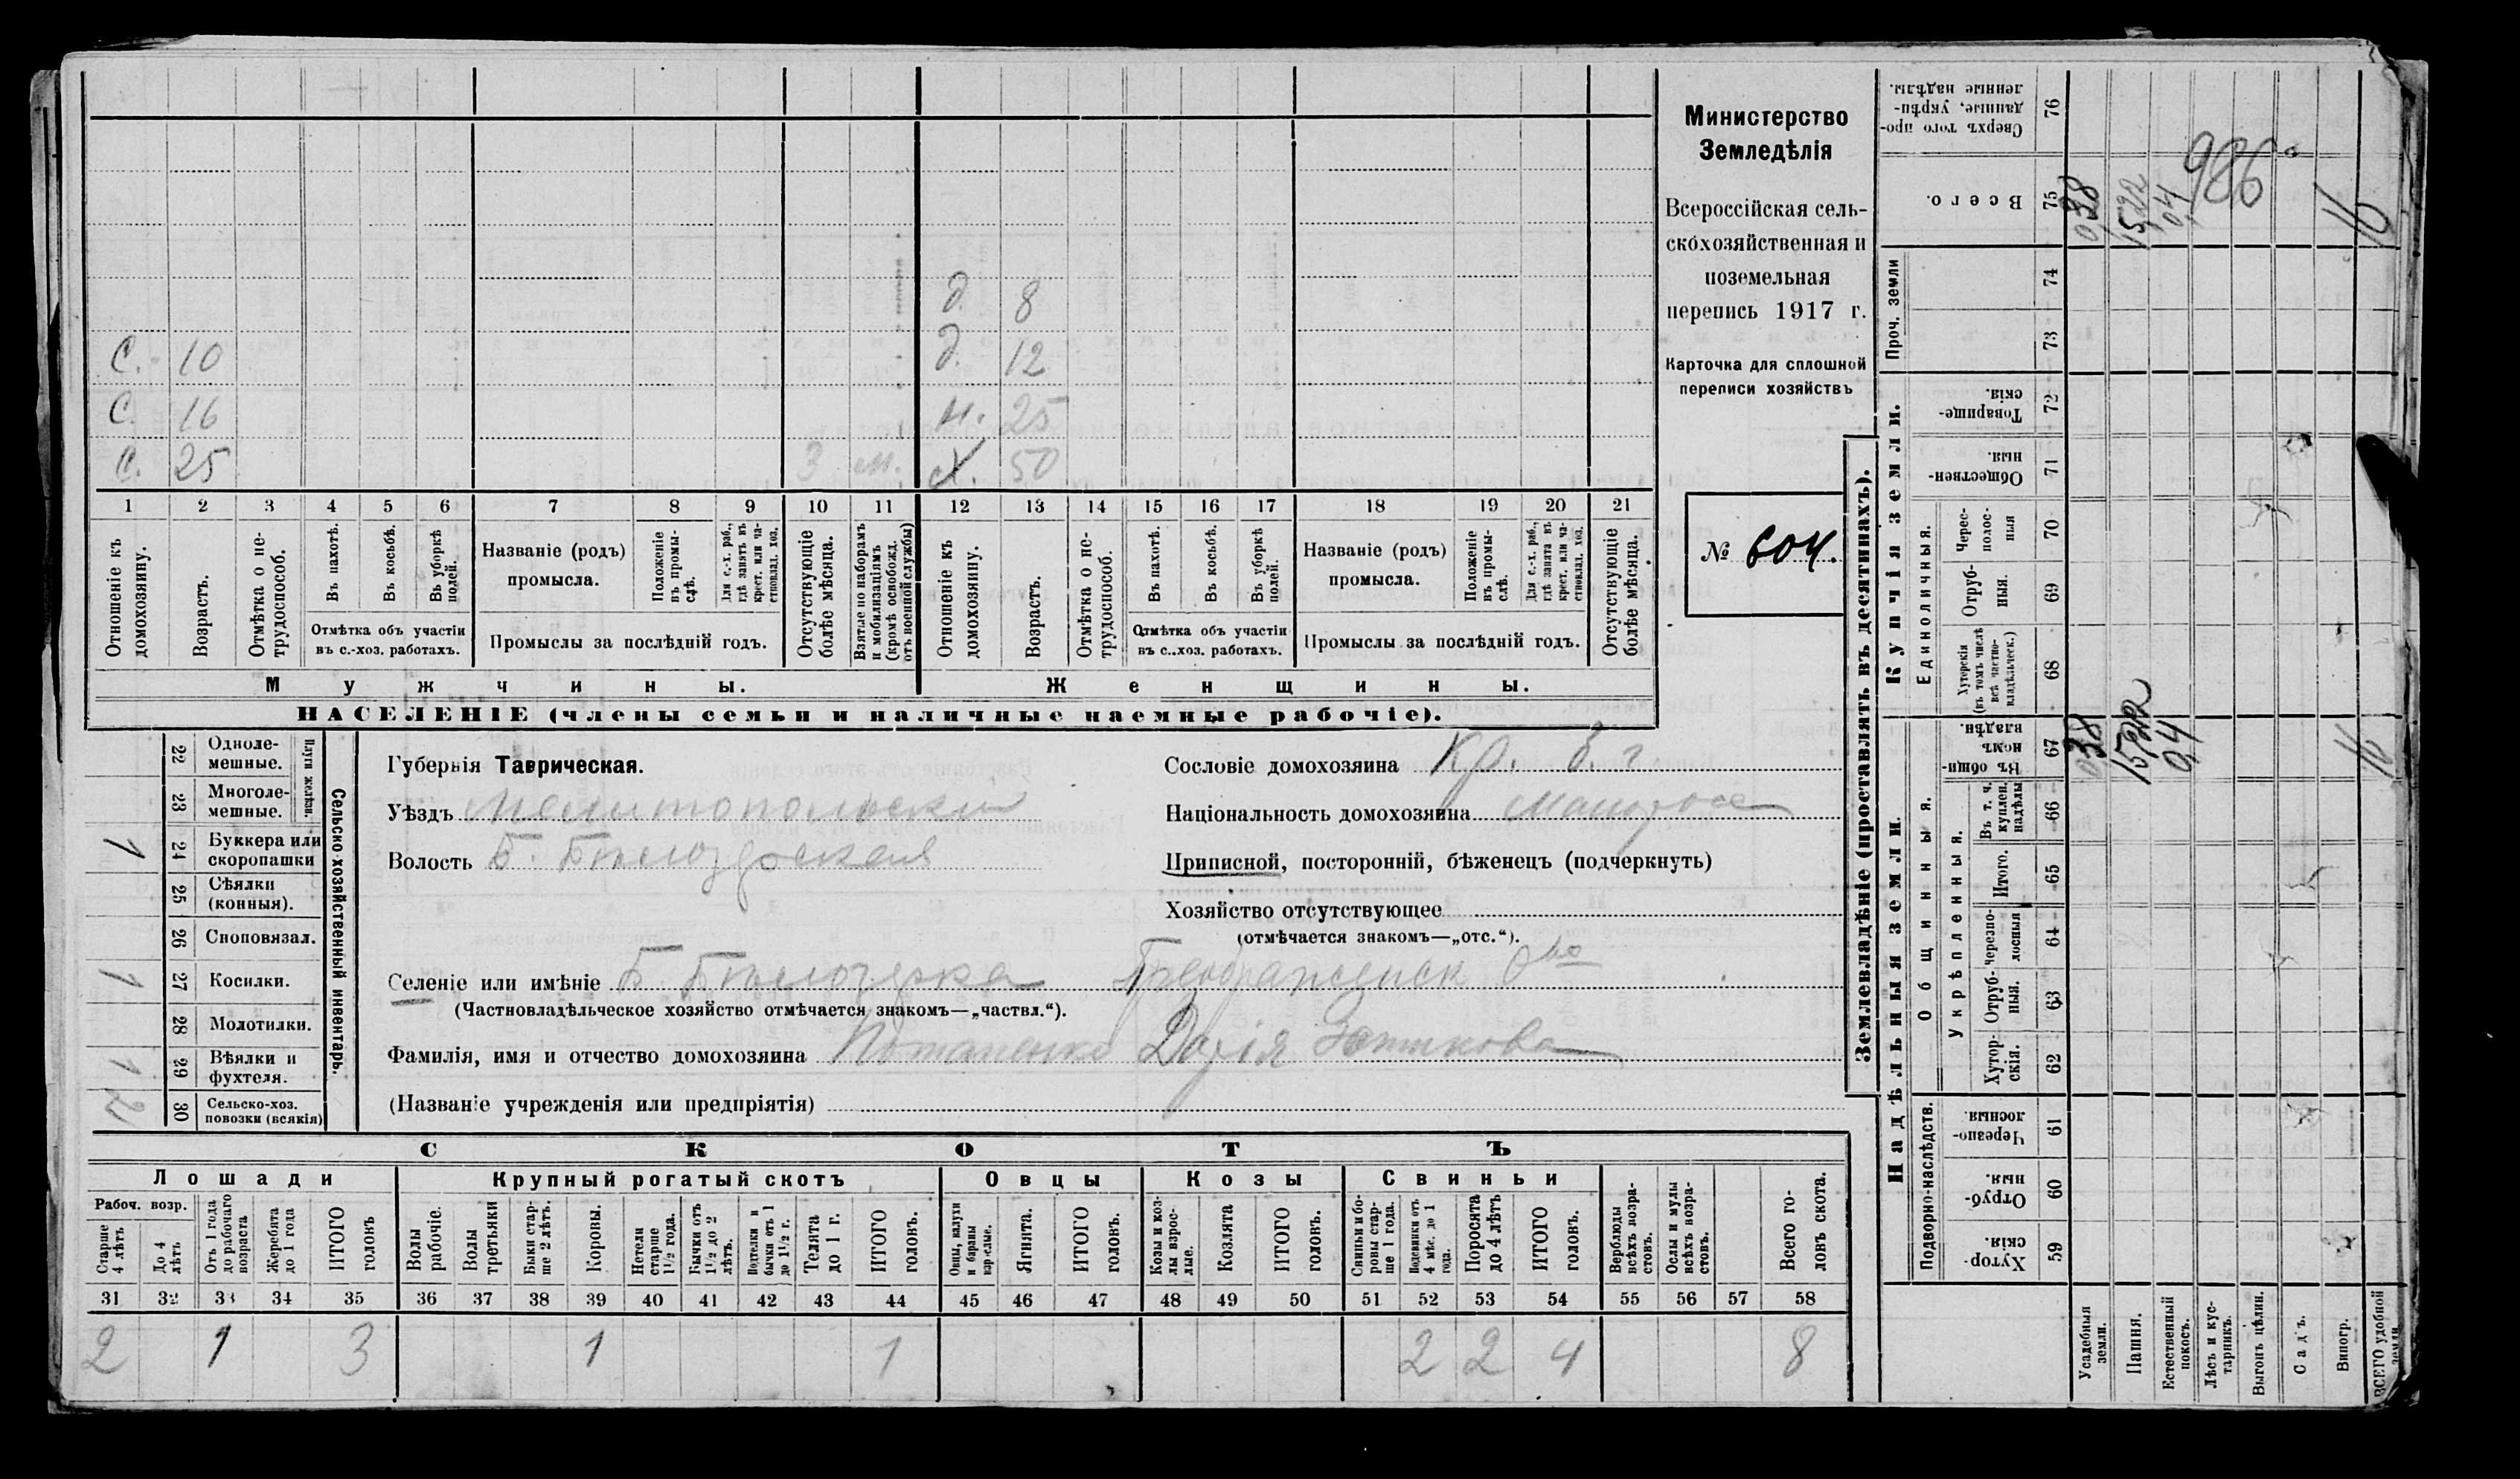 Министерство
Земледѣлія
Всероссійская сель-
скохозяйственная и
поземельная
перепись 1917 г.
Карточка для сплошной
переписи хозяйствъ
№ 604.
д. 8
С. 10 д. 12
С. 16 н. 25
С. 25 3 м. Х. 50
1 2 3 4 5 6 7 8 9 10 11 12 13 14 15 16 17 18 19 20 21
Отношеніе къ домохозяину.
Возрастъ.
Отмѣтка о не-трудоспособ.
Въ пахотѣ.
Въ косьбѣ.
Въ уборкѣ полей.
Отмѣтка объ участіи
въ с.-хоз. работахъ.
Названіе (родъ)
промысла.
Положеніе въ промы-слѣ.
Для с.-х. раб., гдѣ занятъ въ крест. или ча-стновлад. хоз.
Промыслы за послѣдній годъ.
Отсутствующіе болѣе мѣсяца.
Взятые по наборамъ и мобилизаціямъ (кромѣ освобожд. отъ военной службы)
Отношеніе къ домохозяину.
Возрастъ.
Отмѣтка о не-трудоспособ.
Въ пахотѣ.
Въ косьбѣ.
Въ уборкѣ полей.
Отмѣтка объ участіи
въ с..хоз. работахъ.
Названіе (родъ)
промысла.
Положеніе въ промы-слѣ.
Для с.-х. раб., гдѣ занята въ крест. или ча-стновлад. хоз.
Промыслы за послѣдній годъ.
Отсутствующіе болѣе мѣсяца.
Мужчины. Женщины.
НАСЕЛЕНІЕ (члены семьи и наличные наемные рабочіе).
Сельско-хозяйственный инвентарь.
Плуги желѣзн.
22 Одноле-мешные.
23 Многоле-мешные.
1 24 Буккера или скоропашки
25 Сѣялки (конныя).
26 Сноповязал.
1 27 Косилки.
28 Молотилки.
1 29 Вѣялки и фухтеля.
2 30 Сельско-хоз. повозки (всякія)
Губернія Таврическая.
Уѣздъ Мелитопольский
Волость Б. Бѣлозерская
Селеніе или имѣніе Б. Бѣлозерка Преображенск О-во
(Частновладѣльческое хозяйство отмѣчается знакомъ—„частвл.“).
Фамилія, имя и отчество домохозяина Потапенко Дарія
(Названіе учрежденія или предпріятія)
Сословіе домохозяина Кр.
Національность домохозяина малоросс
Приписной, посторонній, бѣженецъ (подчеркнуть)
Хозяйство отсутствующее
(отмѣчается знакомъ—„отс.“).
СКОТЪ
Лошади Крупный рогатый скотъ Овцы Козы Свиньи
Рабоч. возр.
Старше 4 лѣтъ
До 4 лѣтъ
Отъ 1 года до рабочаго возраста
Жеребята до 1 года
ИТОГО головъ
Волы рабочіе.
Волы третьяки
Быки стар-ше 2 лѣтъ.
Коровы.
Нетели старше 1½ года.
Бычки отъ 1½ до 2 лѣтъ.
Подтелки и бычки отъ 1 до 1½ г.
Телята до 1 г.
ИТОГО головъ.
Овцы, валухи и бараны взрослые.
Ягнята.
ИТОГО головъ.
Козы и коз-лы взрос-лые.
Козлята
ИТОГО головъ.
Свиньи и бо-ровы стар-ше 1 года.
Подсвинки отъ 4 мѣс. до 1 года.
Поросята до 4 лѣтъ
ИТОГО головъ.
Верблюды всѣхъ возра-стовъ.
Ослы и мулы всѣхъ возра-стовъ.
Всего го-ловъ скота.
31 32 33 34 35 36 37 38 39 40 41 42 43 44 45 46 47 48 49 50 51 52 53 54 55 56 57 58
2 1 3 1 1 2 2 4 8
Землевладѣніе (проставлять въ десятинахъ).
Надѣльныя земли. Купчія земли. Проч. земли
Подворно-наслѣдств. Общинныя. Укрѣпленныя. Единоличныя.
Хутор-скія. 59
Отруб-ныя. 60
Черезпо-лосныя. 61
Хутор-скія. 62
Отруб-ныя. 63
Черезпо-лосныя 64
Итого. 65
Въ т. ч. куплен. надѣлы 66
Въ общин-номъ владѣн. 67
Хуторскія (въ томъ числѣ всѣ частно-владѣльческ.) 68
Отруб-ныя. 69
Черес-полос-ныя 70
Обществен-ныя. 71
Товарище-скія. 72
73
74
Всего. 75
Сверхъ того про-данные, укрѣп-ленные надѣлы. 76
Усадебныя земли. 0,38 0,38
Пашня. 15,22 15,22
Естественный покосъ. 0,4 0,4
Лѣсъ и кус-тарникъ.
Выгонъ цѣлин.
Садъ.
Виногр.
ВСЕГО удобной земли 16 16
986